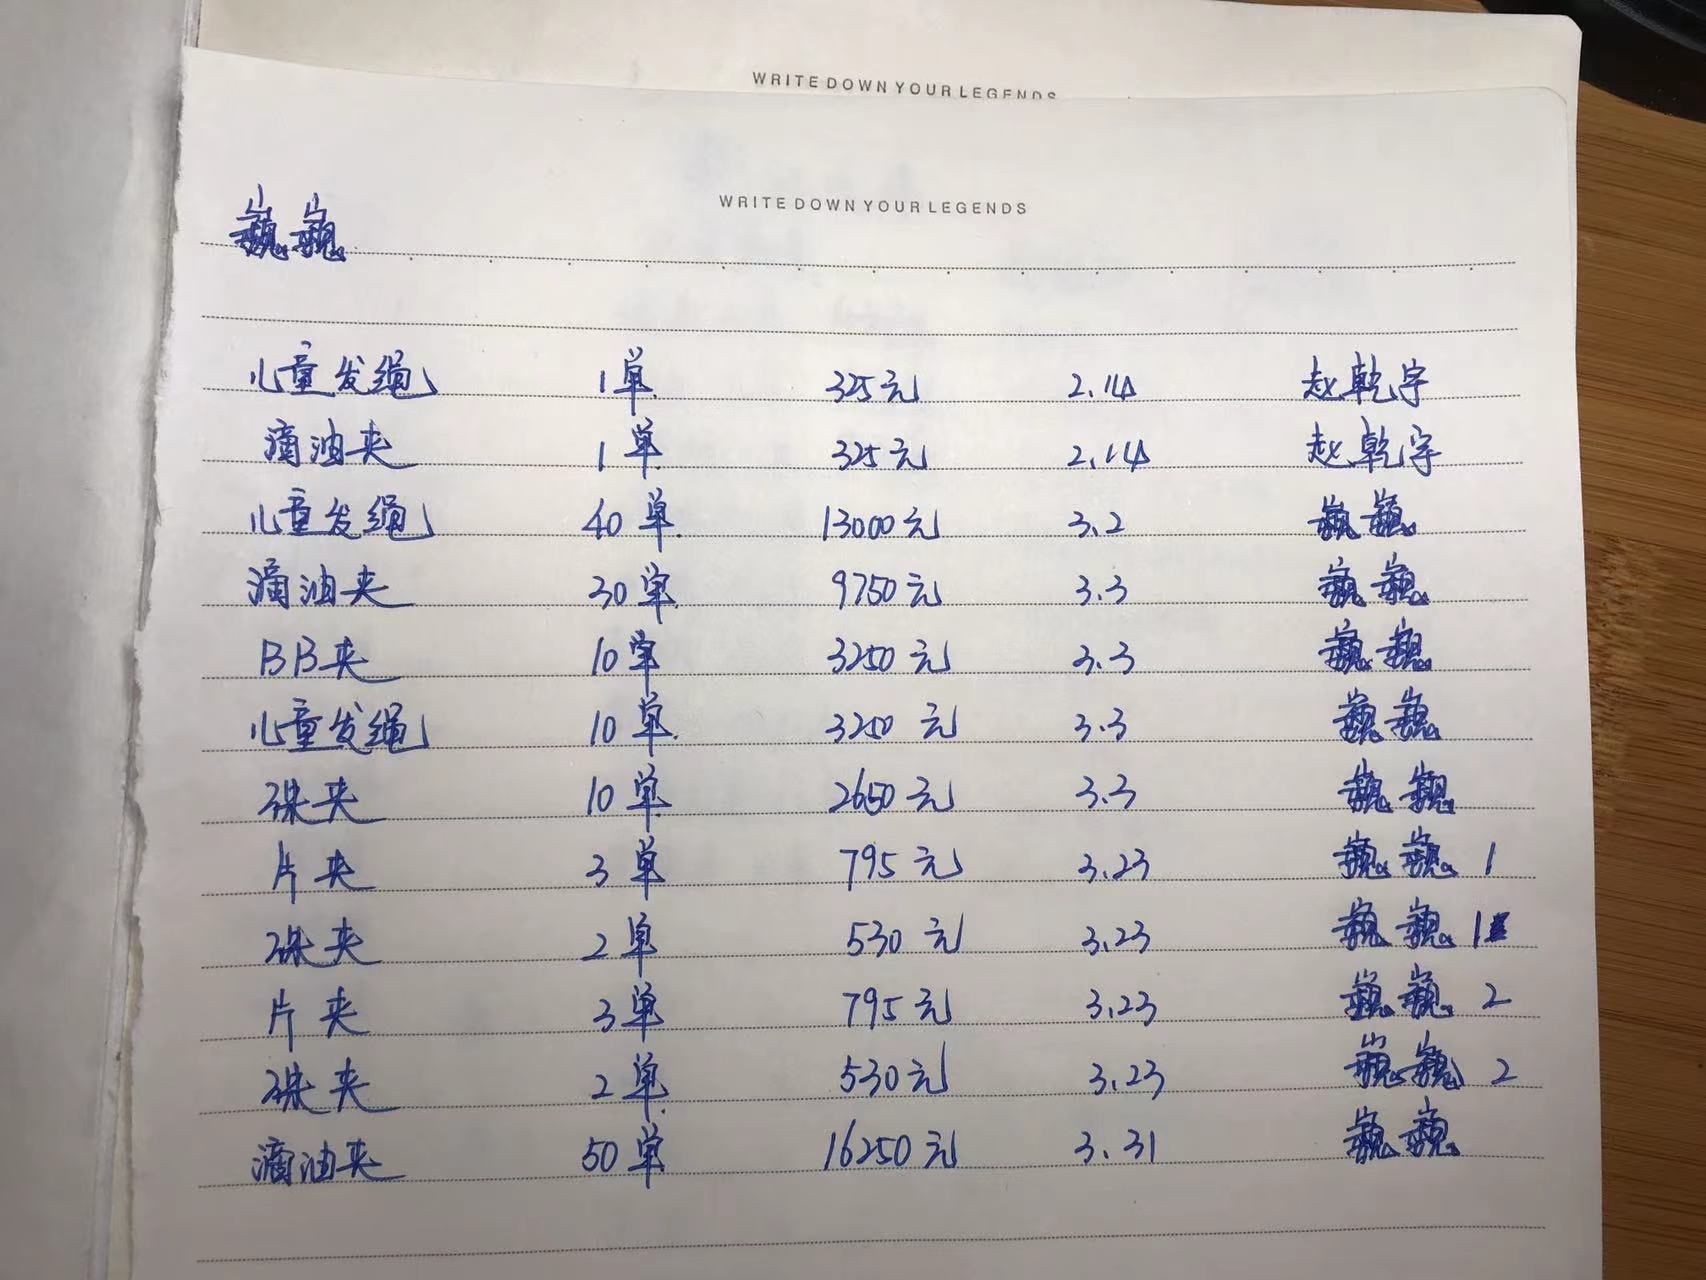 WRITE DOWN YOUR LEGENDS
WRITE DOWN YOUR LEGENDS
巍巍
儿童发绳 1单 325元 2.14 赵乾宇
滴油夹 1单 325元 2.14 赵乾宇
儿童发绳 40单 13000元 3.2 巍巍
滴油夹 30单 9750元 3.3 巍巍
BB夹 10单 3250元 3.3 巍巍
儿童发绳 10单 3250元 3.3 巍巍
珠夹 10单 2650元 3.3 巍巍
片夹 3单 795元 3.23 巍巍 1
珠夹 2单 530元 3.23 巍巍 1
片夹 3单 795元 3.23 巍巍 2
珠夹 2单 530元 3.23 巍巍 2
滴油夹 50单 16250元 3.31 巍巍